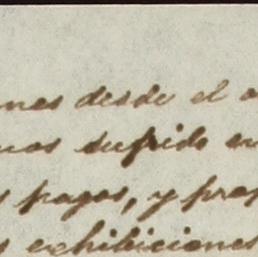 ones desde el a
mos sufrido en
s pagos, y prop
s exhibiciones